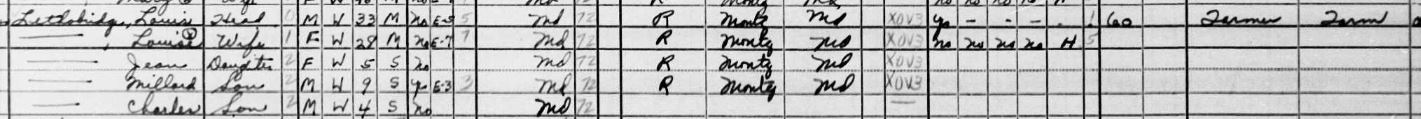 Lethbridge, Louis Head 0 M W 33 M no E-5 5 Md 72 R Montg Md X0V3 yes - - - - 1 60 Farmer Farm
Louise Wife 1 F W 28 M no E-7 7 Md 72 R Montg Md X0V3 no no no no H 5
Jean Daughter 2 F W 5 S no Md 72 R Montg Md X0V3
Millard Son 2 M W 9 S yes E-3 3 Md 72 R Montg Md X0V3
Charles Son 2 M W 4 S no Md 72 —